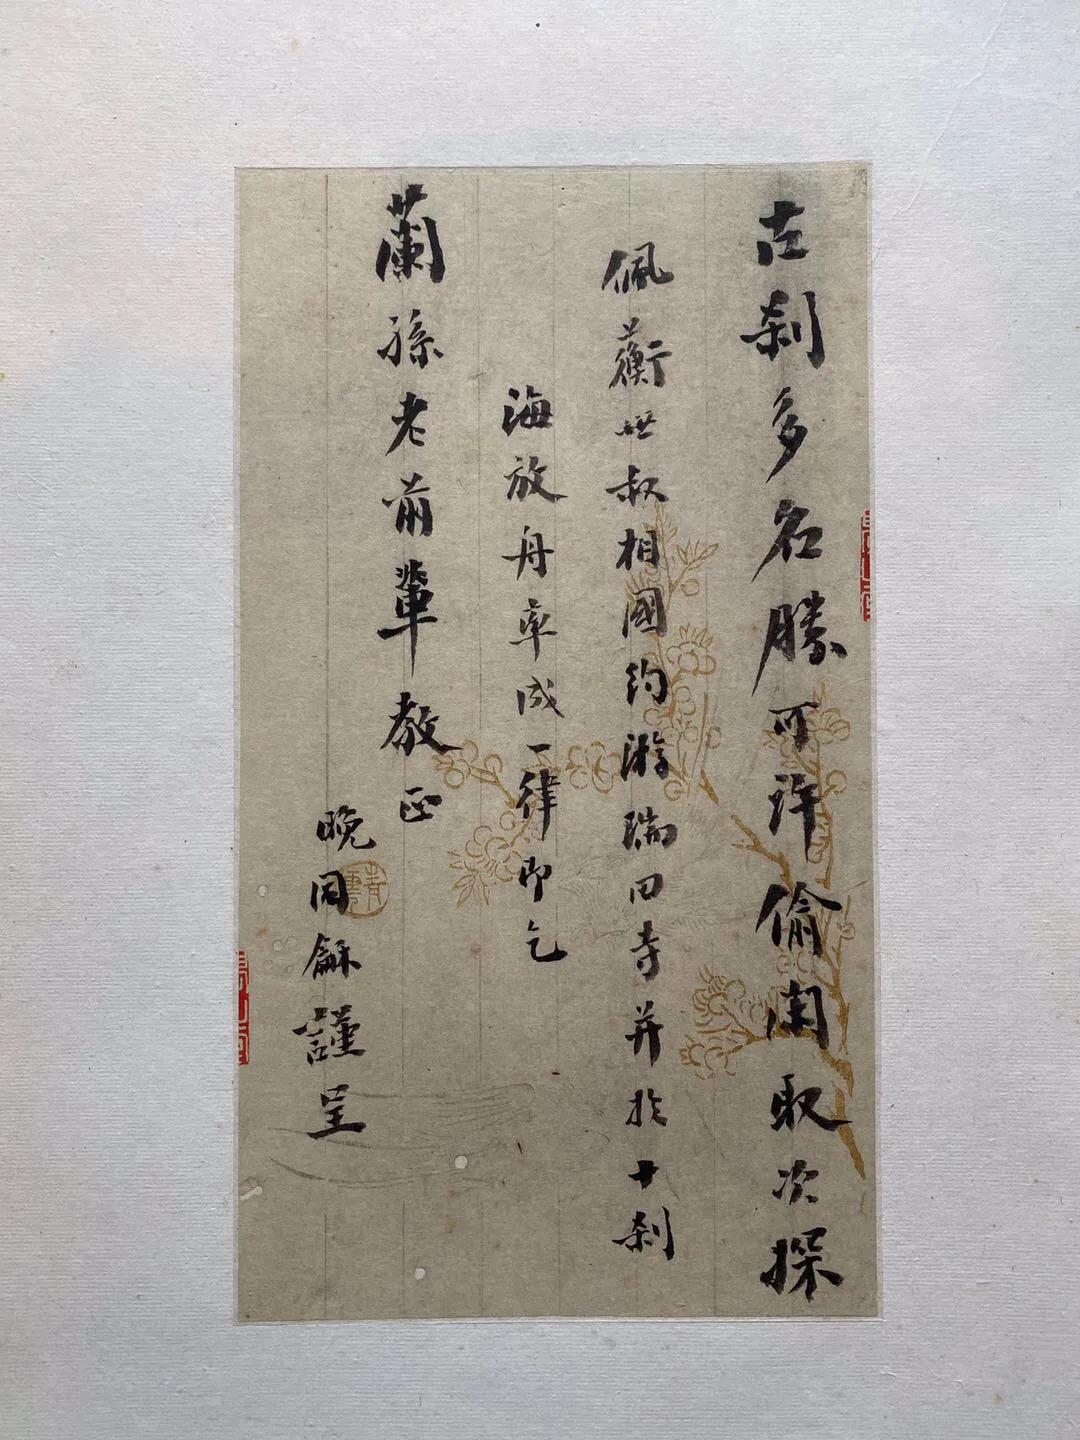 古刹多名勝可許偷閑取次探
佩蘅世叔相國約游瑞應寺并於十刹
海放舟率成一律即乞
蘭孫老前輩教正
晚同龢謹呈